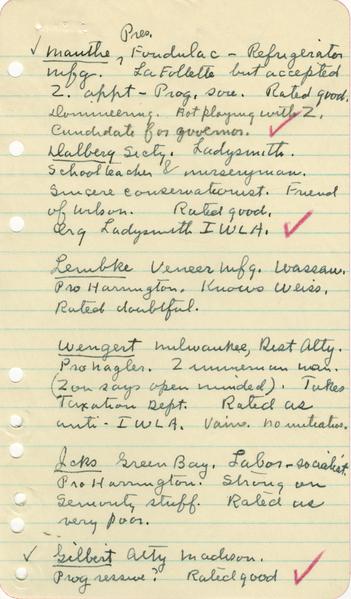 Pres.
✓ Manthe, Fondulac - Refrigerator
mfg. LaFollette but accepted
Z. appt - Prog. soc. Rated good.
Domineering. Not playing with Z.
Candidate for governor. ✓
Dalberg Secty, Ladysmith.
Schoolteacher & nurseryman.
Sincere conservationist. Friend
of Wilson. Rated good.
Org Ladysmith IWLA. ✓
Lembke Veneer mfg. Wassaw.
Pro Harrington. Knows Weiss.
Rated doubtful.
Wengert Milwaukee, Dist Atty.
Pro Nagler. Zimmerman man.
(Zon says open minded). Takes
Taxation Dept. Rated as
anti-IWLA. Vain. No initiative.
Icks Green Bay. Labor-socialist.
Pro Harrington. Strong on
stuff. Rated as
very poor.
✓ Gilbert Atty Madison.
Progressive? Rated good ✓